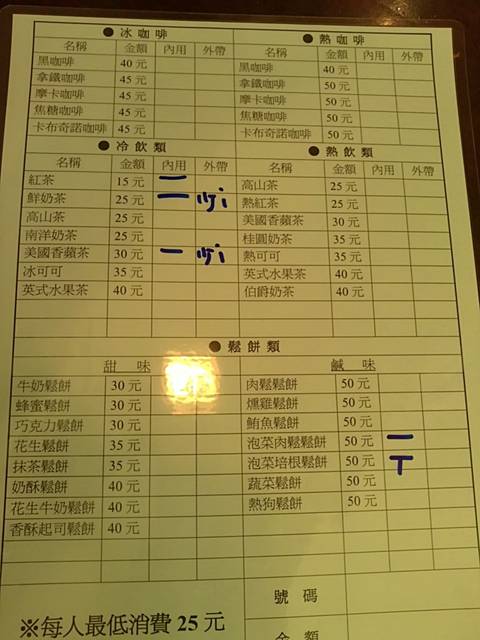 ● 冰咖啡
名稱 金額 內用 外帶
黑咖啡 40元
拿鐵咖啡 45元
摩卡咖啡 45元
焦糖咖啡 45元
卡布奇諾咖啡 45元
● 熱咖啡
名稱 金額 內用 外帶
黑咖啡 40元
拿鐵咖啡 50元
摩卡咖啡 50元
焦糖咖啡 50元
卡布奇諾咖啡 50元
● 冷飲類
名稱 金額 內用 外帶
紅茶 15元
鮮奶茶 25元
高山茶 25元
南洋奶茶 25元
美國香蘋茶 30元
冰可可 35元
英式水果茶 40元
● 熱飲類
名稱 金額 內用 外帶
高山茶 25元
熱紅茶 25元
美國香蘋茶 30元
桂圓奶茶 35元
熱可可 35元
英式水果茶 40元
伯爵奶茶 40元
● 鬆餅類
甜味
牛奶鬆餅 30元
蜂蜜鬆餅 30元
巧克力鬆餅 30元
花生鬆餅 35元
抹茶鬆餅 35元
奶酥鬆餅 40元
花生牛奶鬆餅 40元
香酥起司鬆餅 40元
鹹味
肉鬆鬆餅 50元
燻雞鬆餅 50元
鮪魚鬆餅 50元
泡菜肉鬆鬆餅 50元 一
泡菜培根鬆餅 50元
蔬菜鬆餅 50元
熱狗鬆餅 50元
號碼
金額
※每人最低消費25元